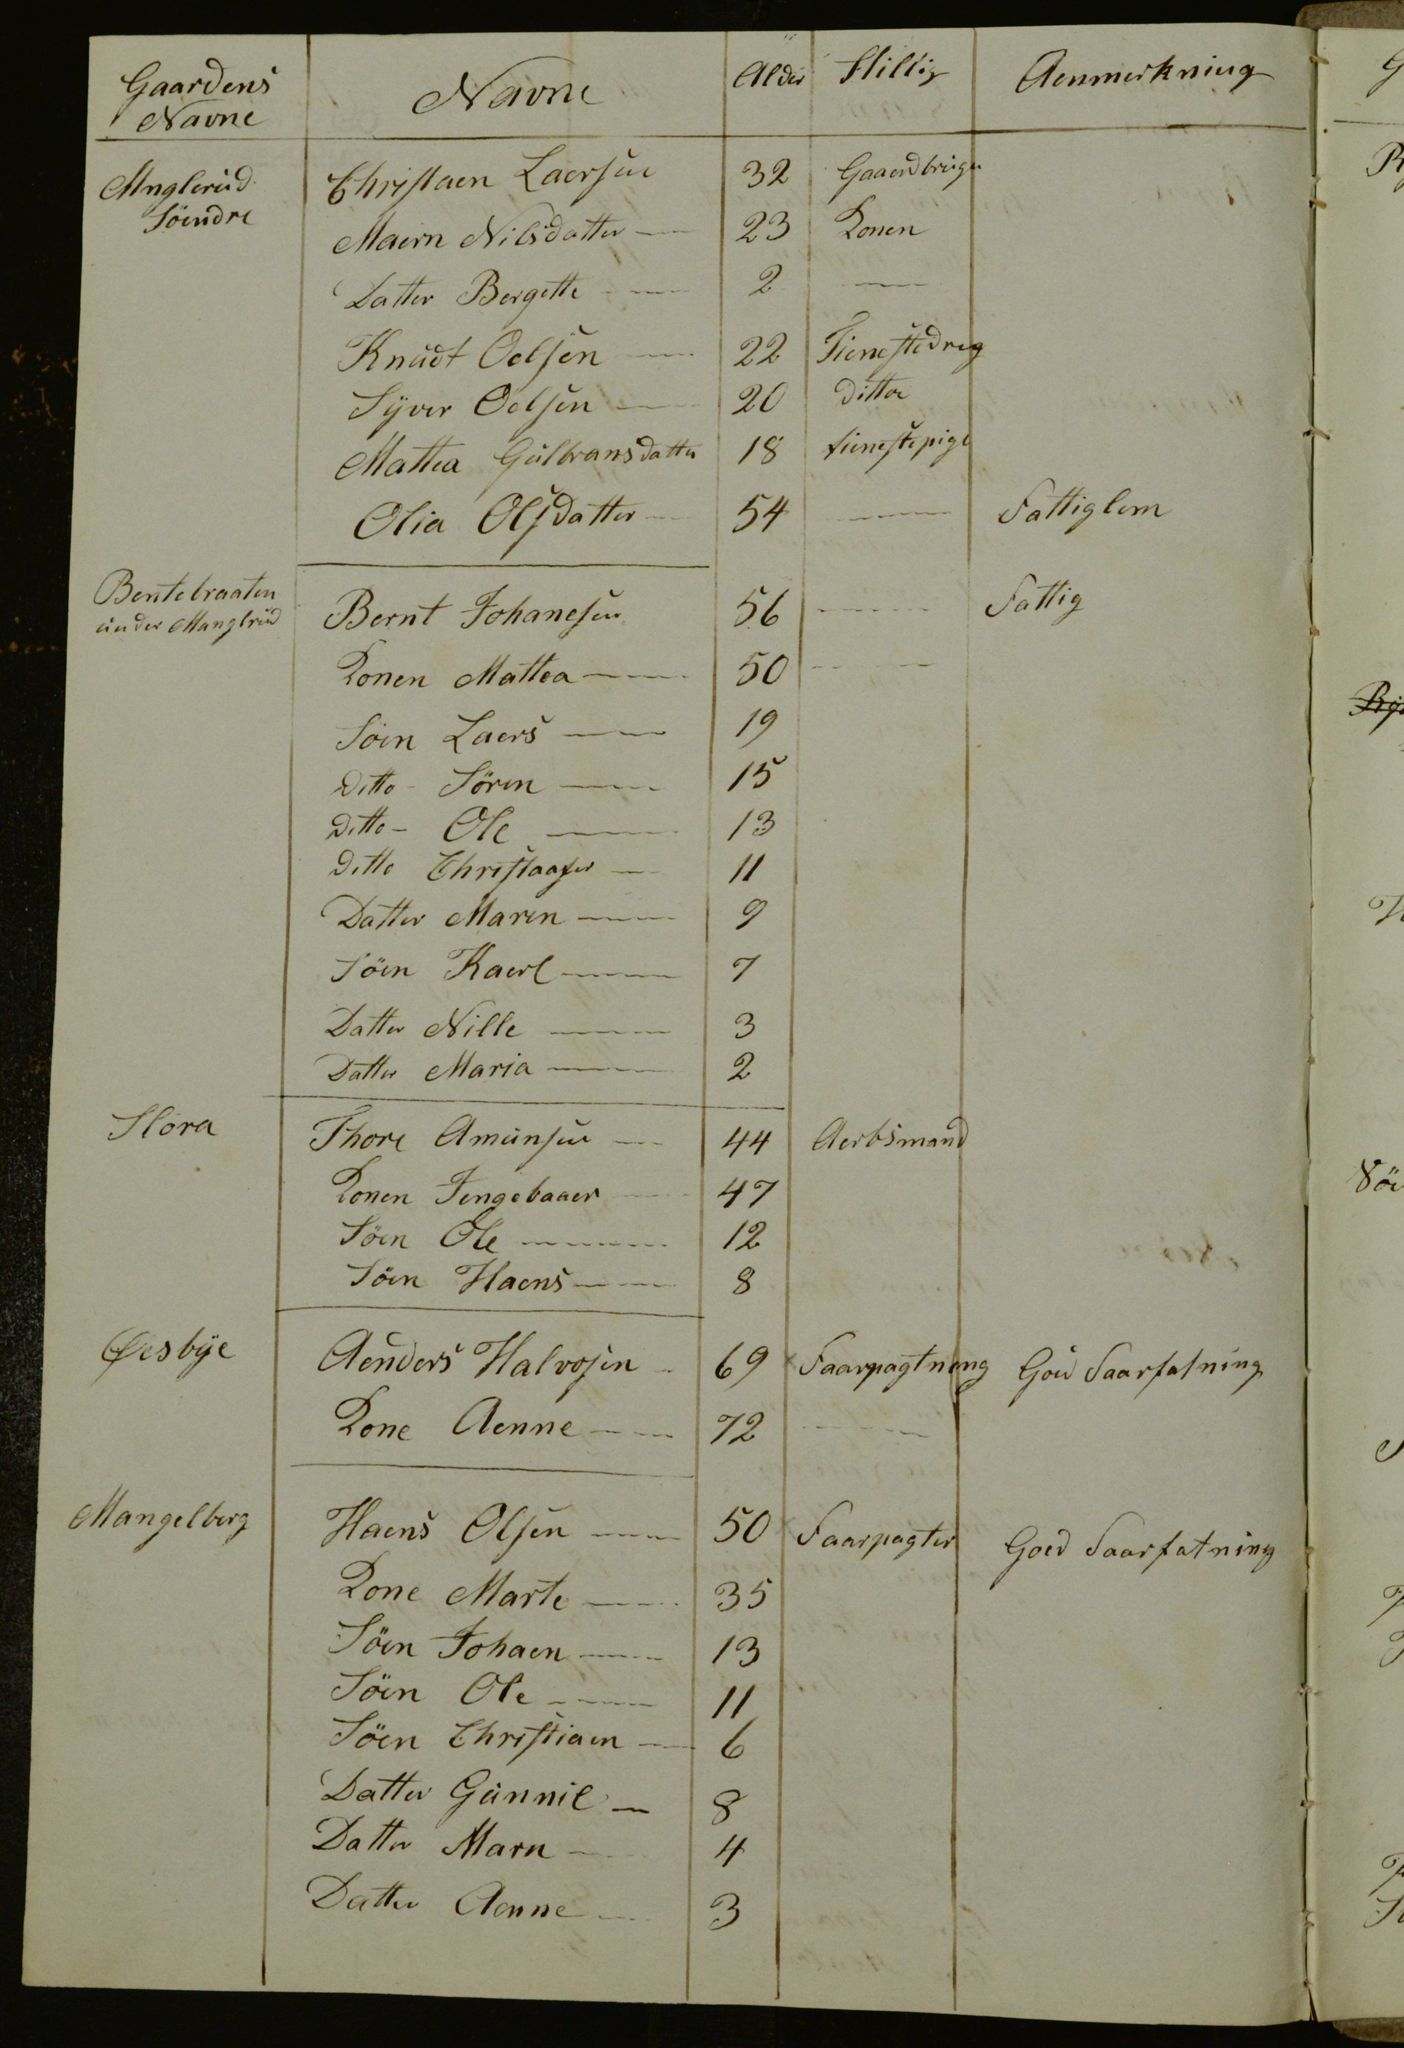 Gaardens Navne | Navne | Alder | Stillig | Aenmerkning
Mnglerud | Christaen Laersen | 32 | Gaaerdbruger
Söendre
Maern Nilsdatter — | 23 | Konen
Datter Bergette — | 2 | —
Knudt Oelsen — | 22 | Tienestedreg
Syver Oelsen — | 20 | ditto
Mattea Gulbransdatter | 18 | tienestepige
Olia Olsdatter — | 54 | — | Fattiglem
Bentebraaten | Bernt Johanesen | 56 | — | Fattig
under Manglrud
Konen Mattea — | 50 | —
Söen Laers — | 19
Ditto - Sören — | 15
Ditto - Ole — | 13
Ditto Christaafer — | 11
Datter Maren — | 9
Söen Kaerl — | 7
Datter Nille — | 3
Datter Maria — | 2
Slora | Thore Amunsen — | 44 | Aerbsmand
Konen Jengebaaer | 47
Söen Ole — | 12
Söen Haens — | 8
Øesbye | Aenders Halvosen — | 69 | Faarpagtneng | Goed Faarfatning
Kone Aenne — | 72 | —
Mangelberg | Haens Olsen — | 50 | Faarpagter | Goed Faarfatning
Kone Marte — | 35
Söen Johaen — | 13
Söen Ole — | 11
Söen Christiaen — | 6
Datter Gunnil — | 8
Datter Marn — | 4
Datter Aenne — | 3